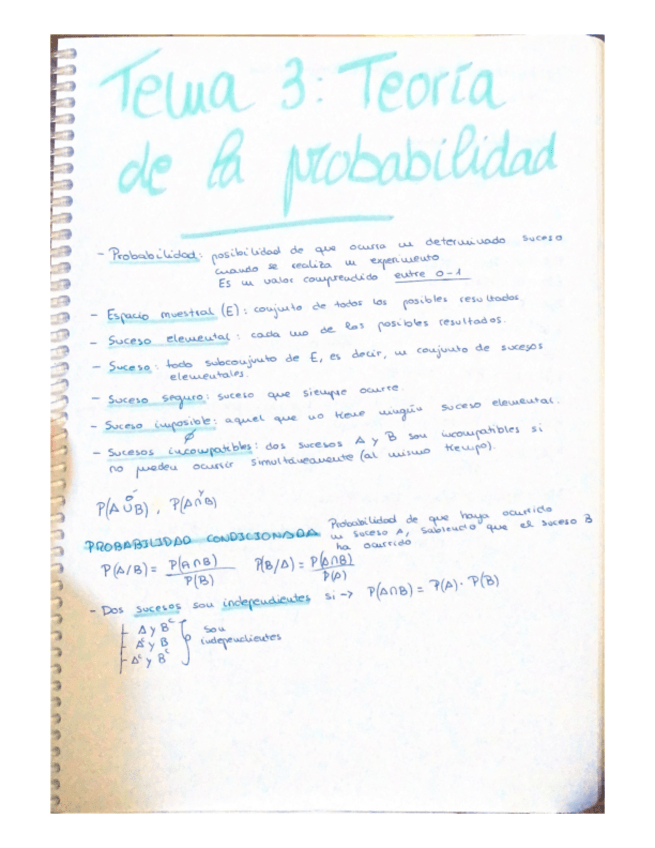 Tema 3: Teoría
de la probabilidad
- Probabilidad: posibilidad de que ocurra un determinado suceso
cuando se realiza un experimento
Es un valor comprendido entre 0-1
- Espacio muestral (E): conjunto de todos los posibles resultados.
- Suceso elemental: cada uno de los posibles resultados.
- Suceso: todo subconjunto de E, es decir, un conjunto de sucesos
elementales.
- Suceso seguro: suceso que siempre ocurre.
- Suceso imposible: aquel que no tiene ningún suceso elemental.
∅
- Sucesos incompatibles: dos sucesos A y B son incompatibles si
no pueden ocurrir simultáneamente (al mismo tiempo).
o y
P(A∪B), P(A∩B)
PROBABILIDAD CONDICIONADA Probabilidad de que haya ocurrido
un suceso A, sabiendo que el suceso B
ha ocurrido
P(A/B) = P(A∩B) / P(B) P(B/A) = P(A∩B) / P(A)
- Dos sucesos son independientes si -> P(A∩B) = P(A) · P(B)
- A y Bᶜ
- Aᶜ y B
- Aᶜ y Bᶜ
son
independientes